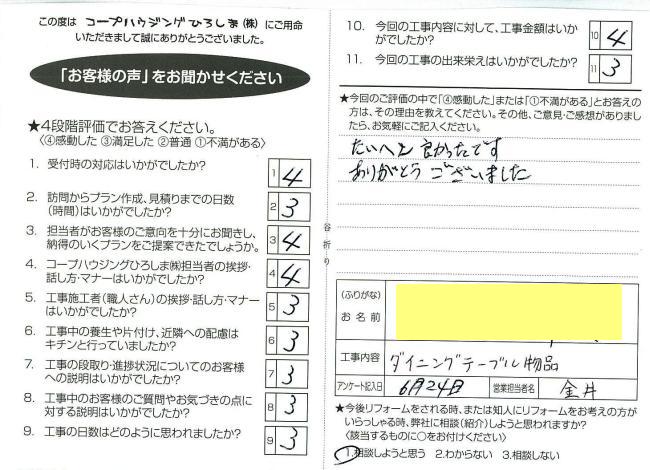 この度は コープハウジングひろしま(株) にご用命
いただきまして誠にありがとうございました。
「お客様の声」をお聞かせください
★4段階評価でお答えください。
〈④感動した ③満足した ②普通 ①不満がある〉
1. 受付時の対応はいかがでしたか? 1 4
2. 訪問からプラン作成、見積りまでの日数
(時間)はいかがでしたか? 2 3
3. 担当者がお客様のご意向を十分にお聞きし、
納得のいくプランをご提案できたでしょうか。 3 4
4. コープハウジングひろしま㈱担当者の挨拶・
話し方・マナーはいかがでしたか? 4 4
5. 工事施工者(職人さん)の挨拶・話し方・マナー
はいかがでしたか? 5 3
6. 工事中の養生や片付け、近隣への配慮は
キチンと行っていましたか? 6 3
7. 工事の段取り・進捗状況についてのお客様
への説明はいかがでしたか? 7 3
8. 工事中のお客様のご質問やお気づきの点に
対する説明はいかがでしたか? 8 3
9. 工事の日数はどのように思われましたか? 9 3
谷折り
10. 今回の工事内容に対して、工事金額はいか
がでしたか? 10 4
11. 今回の工事の出来栄えはいかがでしたか? 11 3
★今回のご評価の中で「④感動した」または「①不満がある」とお答え
の方は、その理由を教えてください。その他、ご意見・ご感想がありまし
たら、お気軽にご記入ください。
たいへん良かったです
ありがとうございました
(ふりがな)
お名前
工事内容 ダイニングテーブル物品
アンケート記入日 6月24日 営業担当者名 金井
★今後リフォームをされる時、または知人にリフォームをお考えの方が
いらっしゃる時、弊社に相談(紹介)しようと思われますか?
〈該当するものに○をお付けください〉
1.相談しようと思う 2.わからない 3.相談しない